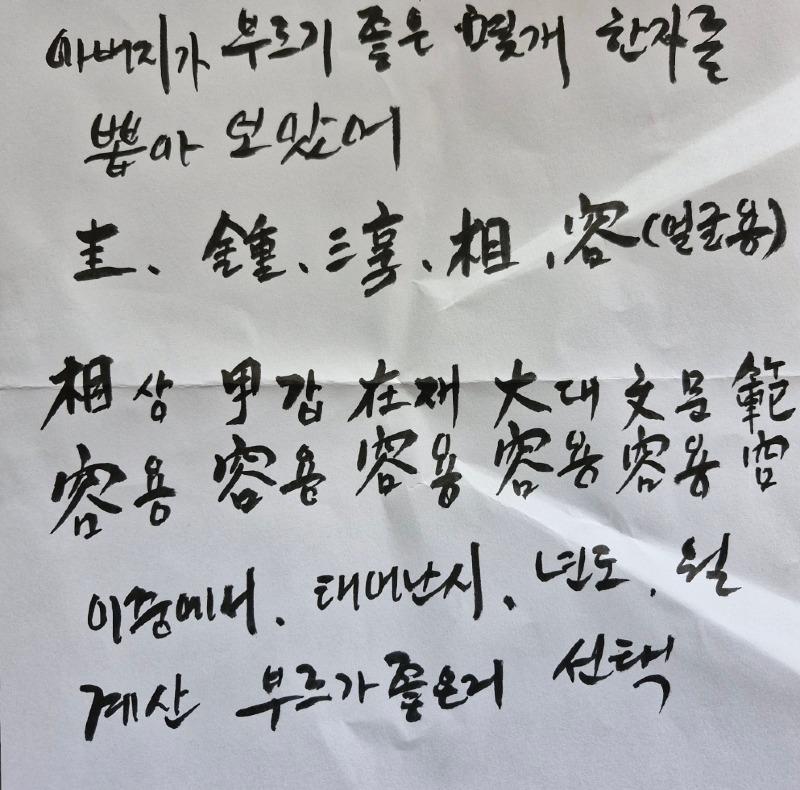 아버지가 부르기 좋은 몇개 한자를
뽑아 보았어
圭、鍾、三享、相、容(얼굴용)
相상 甲갑 在재 大대 文문 範
容용 容용 容용 容용 容용 容
이중에서、태어난시、년도、월
계산 부르가좋은거 선택